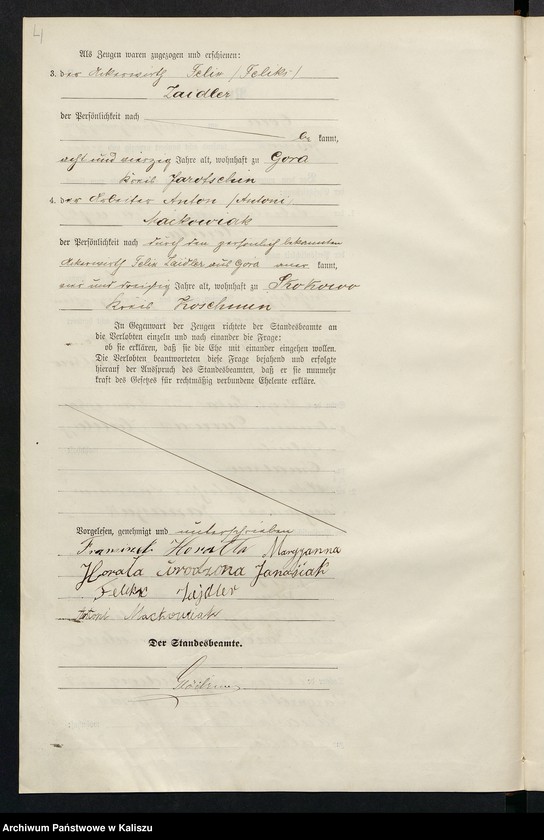 4
Als Zeugen waren zugezogen und erschienen:
3. der Ackerwirth Felix /Feliks/
Zaidler
der Persönlichkeit nach
be kannt,
acht und vierzig Jahre alt, wohnhaft zu Gora
Kreis Jarotschin
4. der Arbeiter Anton /Antoni/
Mackowiak
der Persönlichkeit nach durch den persönlich bekannten
Ackerwirth Felix Zaidler aus Gora aner kannt,
und dreißig Jahre alt, wohnhaft zu
Kreis Koschmin
In Gegenwart der Zeugen richtete der Standesbeamte an
die Verlobten einzeln und nach einander die Frage:
ob sie erklären, daß sie die Ehe mit einander eingehen wollen.
Die Verlobten beantworteten diese Frage bejahend und erfolgte
hierauf der Ausspruch des Standesbeamten, daß er sie nunmehr
kraft des Gesetzes für rechtmäßig verbundene Eheleute erkläre.
Vorgelesen, genehmigt und unterschrieben
Horała Maryjanna
Horała urodzona Janasiak
Feliks Zajdler
Antoni Mackowiak
Der Standesbeamte.
Archiwum Państwowe w Kaliszu